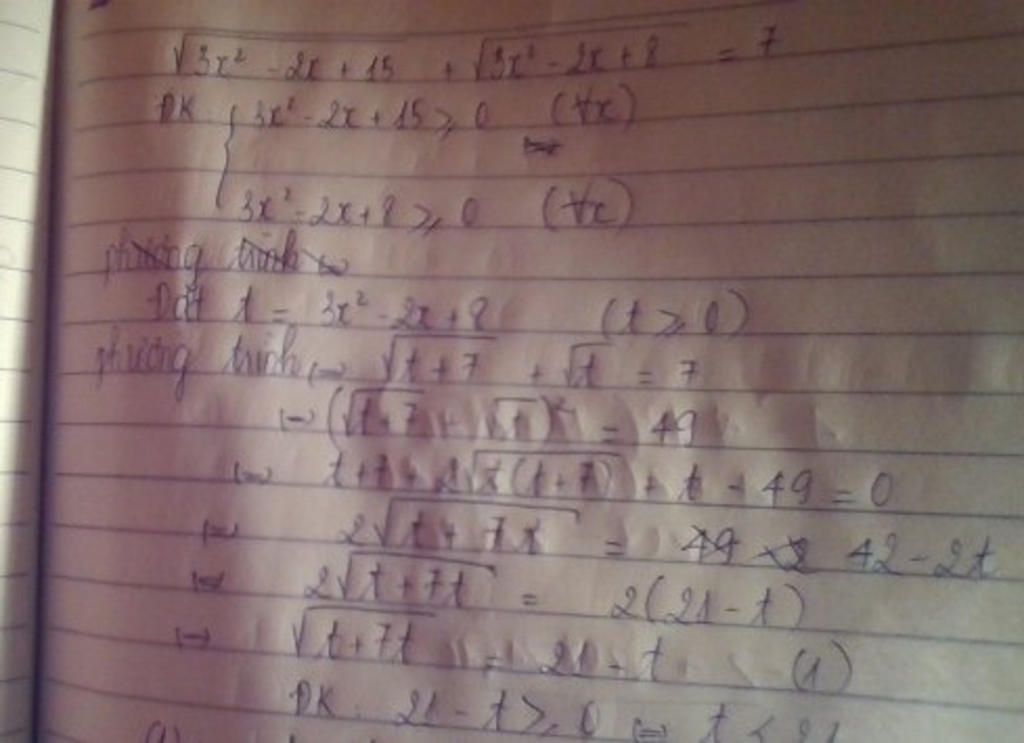 √(3x² - 2x + 15) + √(3x² - 2x + 8) = 7
ĐK { 3x² - 2x + 15 ≥ 0 (∀x)
3x² - 2x + 8 ≥ 0 (∀x)
phương trình ⇔
Đặt t = 3x² - 2x + 8 (t ≥ 0)
phương trình ⇔ √(t + 7) + √t = 7
⇔ (√(t + 7) + √t)² = 49
⇔ t + 7 + 2√(t(t + 7)) + t - 49 = 0
⇔ 2√(t + 7t) = 42 - 2t
⇔ 2√(t + 7t) = 2(21 - t)
⇔ √(t + 7t) = 21 - t (1)
ĐK: 21 - t ≥ 0 ⇔ t ≤ 21